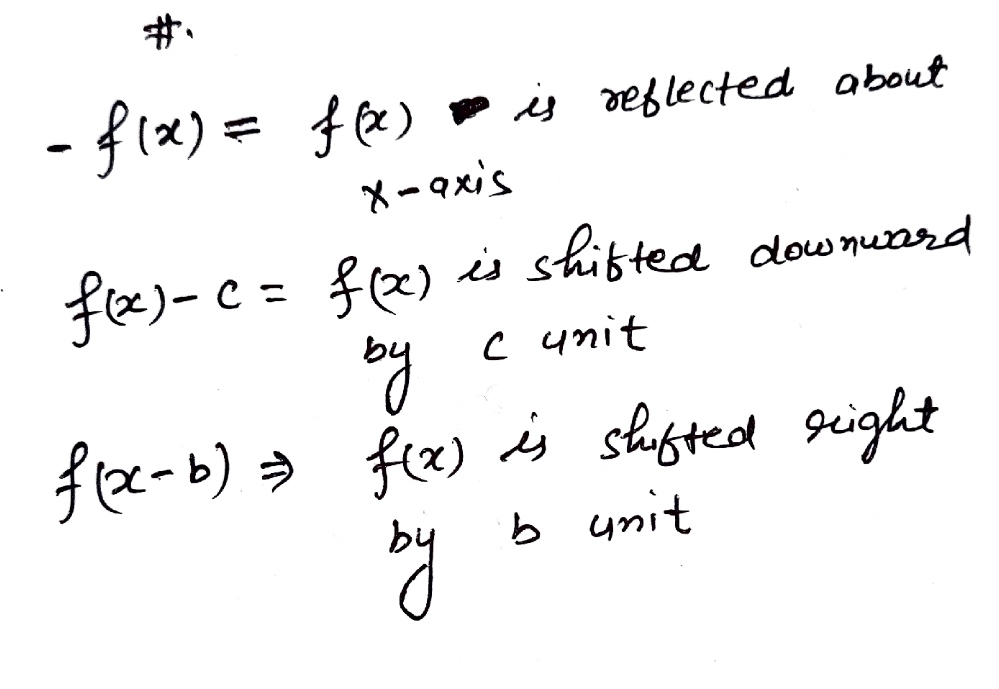 #.
- f(x) = f(x) is reflected about
x-axis
f(x) - c = f(x) is shifted downward
by c unit
f(x-b) ⇒ f(x) is shifted right
by b unit